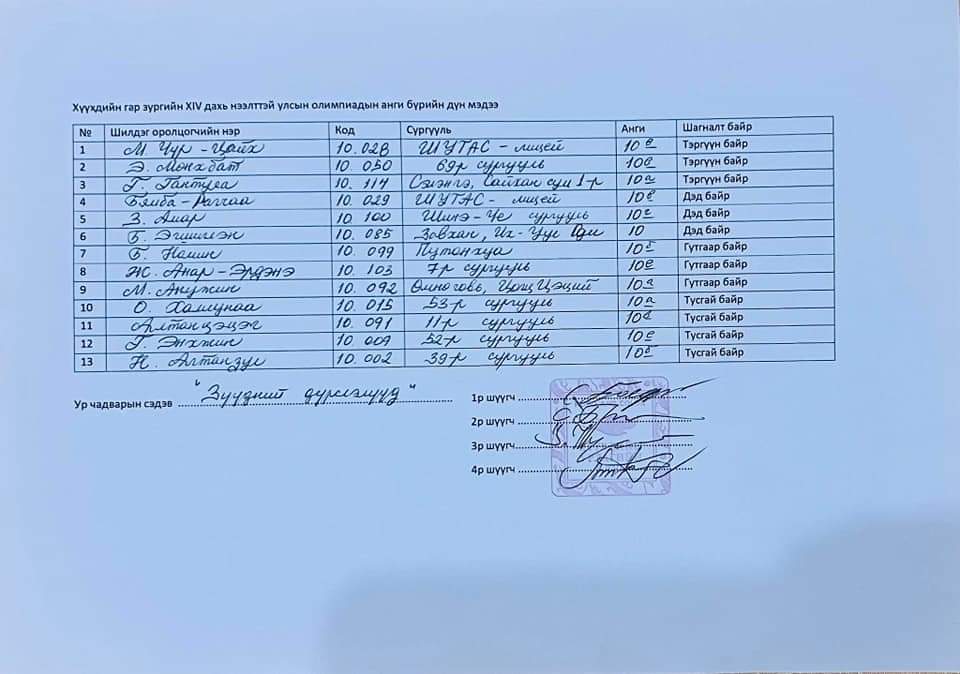 Хүүхдийн гар зургийн XIV дахь нээлттэй улсын олимпиадын анги бүрийн дүн мэдээ
№ Шилдэг оролцогчийн нэр Код Сургууль Анги Шагналт байр
1 М. Чур-Цайх 10.028 ШУТАС - лицей 10 Тэргүүн байр
2 Э. Мөнхбат 10.050 69р сургууль 10 Тэргүүн байр
3 Г. Гантулга 10.114 Сэлэнгэ, Сайхан сум 1-р 10а Тэргүүн байр
4 Бямба-Рагчаа 10.029 ШУТАС - лицей 10 Дэд байр
5 З. Амар 10.100 Шинэ-Үе сургууль 10 Дэд байр
6 Б. Эгшиглэн 10.085 Завхан, Их-Уул 10 Дэд байр
7 Б. Номин 10.099 Путонхуа 10 Гутгаар байр
8 Ж. Анар-Эрдэнэ 10.103 7-р сургууль 10 Гутгаар байр
9 М. Анужин 10.092 Өмнөговь, ЦогтЦэций 10а Гутгаар байр
10 О. Халиунаа 10.015 53-р сургууль 10а Тусгай байр
11 Алтанцэцэг 10.091 11-р сургууль 10 Тусгай байр
12 Г. Энхжин 10.009 52-р сургууль 10 Тусгай байр
13 Н. Алтанзул 10.002 39-р сургууль 10 Тусгай байр
Ур чадварын сэдэв "Зүүдний дүрслэлүүд"
1р шүүгч
2р шүүгч
3р шүүгч
4р шүүгч